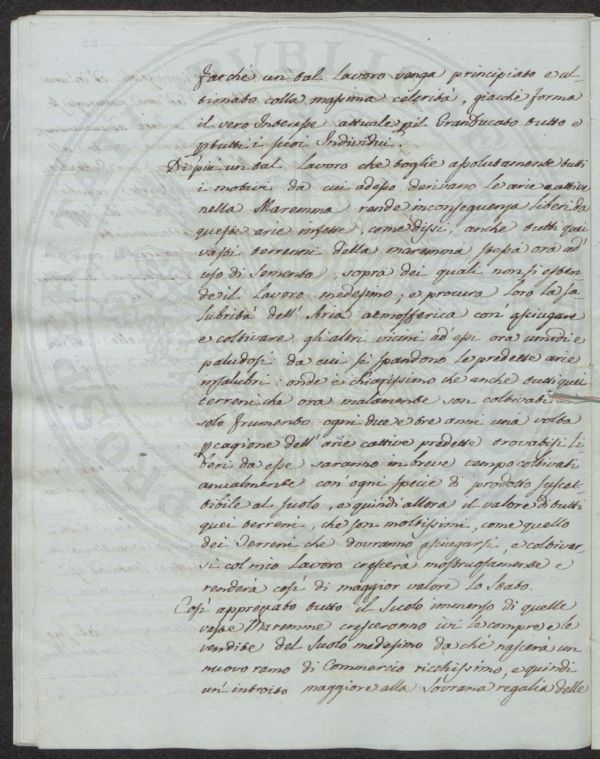 farchè un tal Lavoro venga principiato e ul-
timato colla massima celerità, giacchè forma
il vero Interesse attuale pil GranDucato tutto e
ptutti i suoi Individui.
Di più un tal Lavoro che toglie assolutamente tutti
i motivi da cui adesso derivano le arie cattive
nella Maremma rende inconseguenza liberi da
queste arie infette, come dissi, anche tutti quei
vasti terreni della maremma stessa ora ad'
uso di Sementa, sopra dei quali non si esten-
de il Lavoro medesimo; e procura loro la sa-
lubrità dell'Aria atmosferica con'asciugare
e coltivare gli altri vicini ad'essi ora umidi e
paludosi da cui si spandono le predette arie
insalubri: onde è chiarissimo che anche tutti quei
terreni che ora malamente son coltivati
solo frumento ogni due e tre anni una volta
pcagione dell'arie cattive predette trovatisi li-
beri da esse saranno in breve tempo coltivati
annualmente con'ogni specie di prodotto suscet-
tibile al suolo, e quindi allora il valore di tutti
quei terreni, che son moltissimi, come quello
dei Terreni che dovranno asciugarsi, e coltivar-
si col mio Lavoro crescerà mostruosamente e
renderà così di maggior valore lo Stato.
Così apprezzato tutto il Suolo immenso di quelle
vaste Maremme cresceranno ivi le compre e le
vendite del Suolo medesimo da chè nascerà un
nuovo ramo di Commercio ricchissimo, e quindi
un'introito maggiore alla Sovrana regalia delle